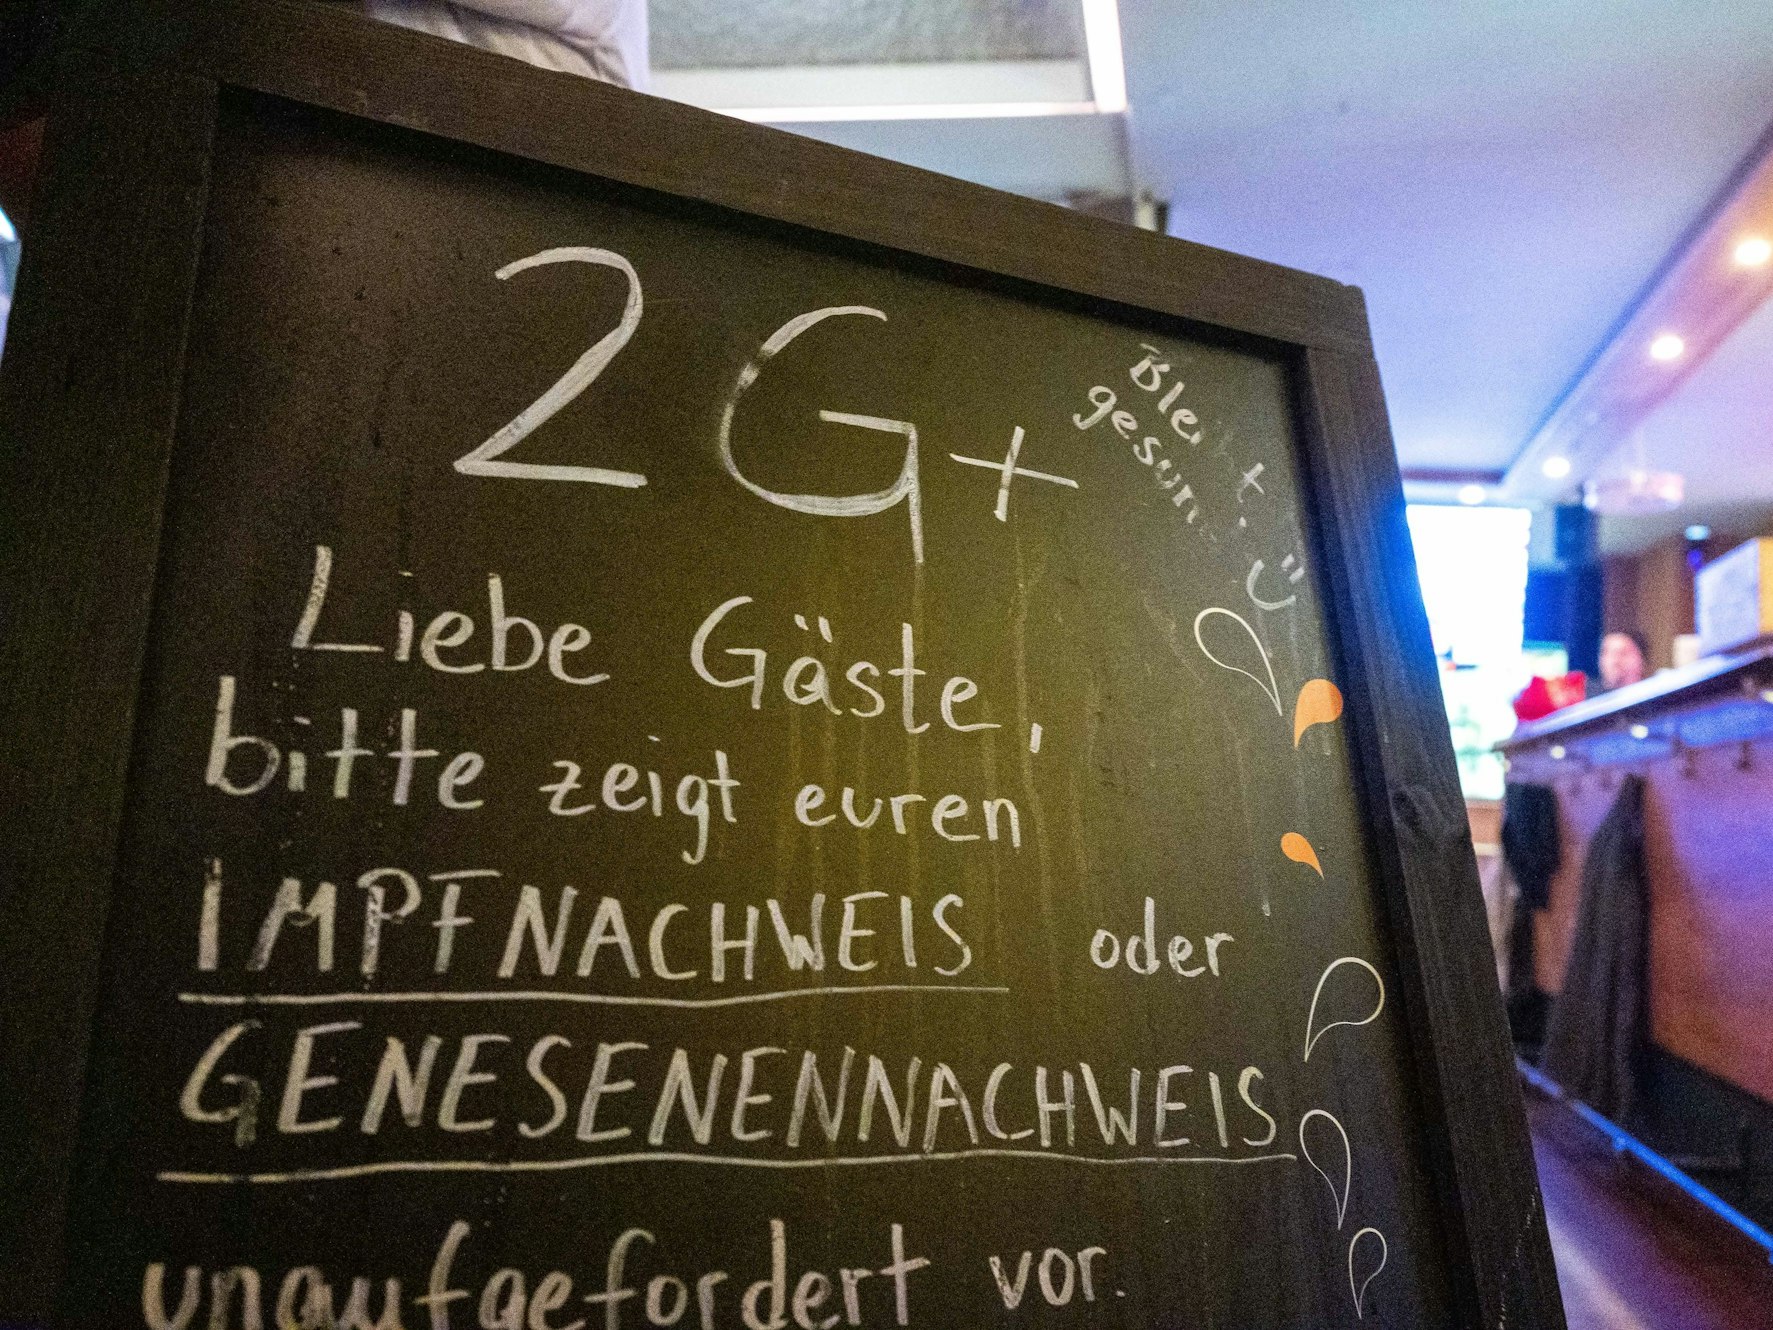 2G+
Bleibt
gesund
Liebe Gäste,
bitte zeigt euren
IMPFNACHWEIS oder
GENESENENNACHWEIS
unaufgefordert vor.